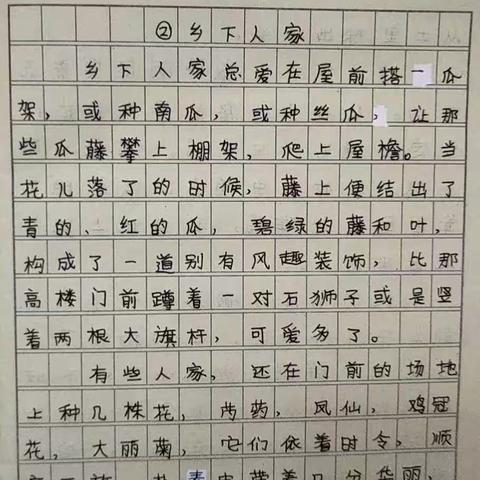 ②乡下人家
乡下人家总爱在屋前搭一瓜
架，或种南瓜，或种丝瓜，让那
些瓜藤攀上棚架，爬上屋檐。当
花儿落了的时候，藤上便结出了
青的、红的瓜，碧绿的藤和叶，
构成了一道别有风趣装饰，比那
高楼门前蹲着一对石狮子或是竖
着两根大旗杆，可爱多了。
有些人家，还在门前的场地
上种几株花，芍药，凤仙，鸡冠
花，大丽菊，它们依着时令，顺